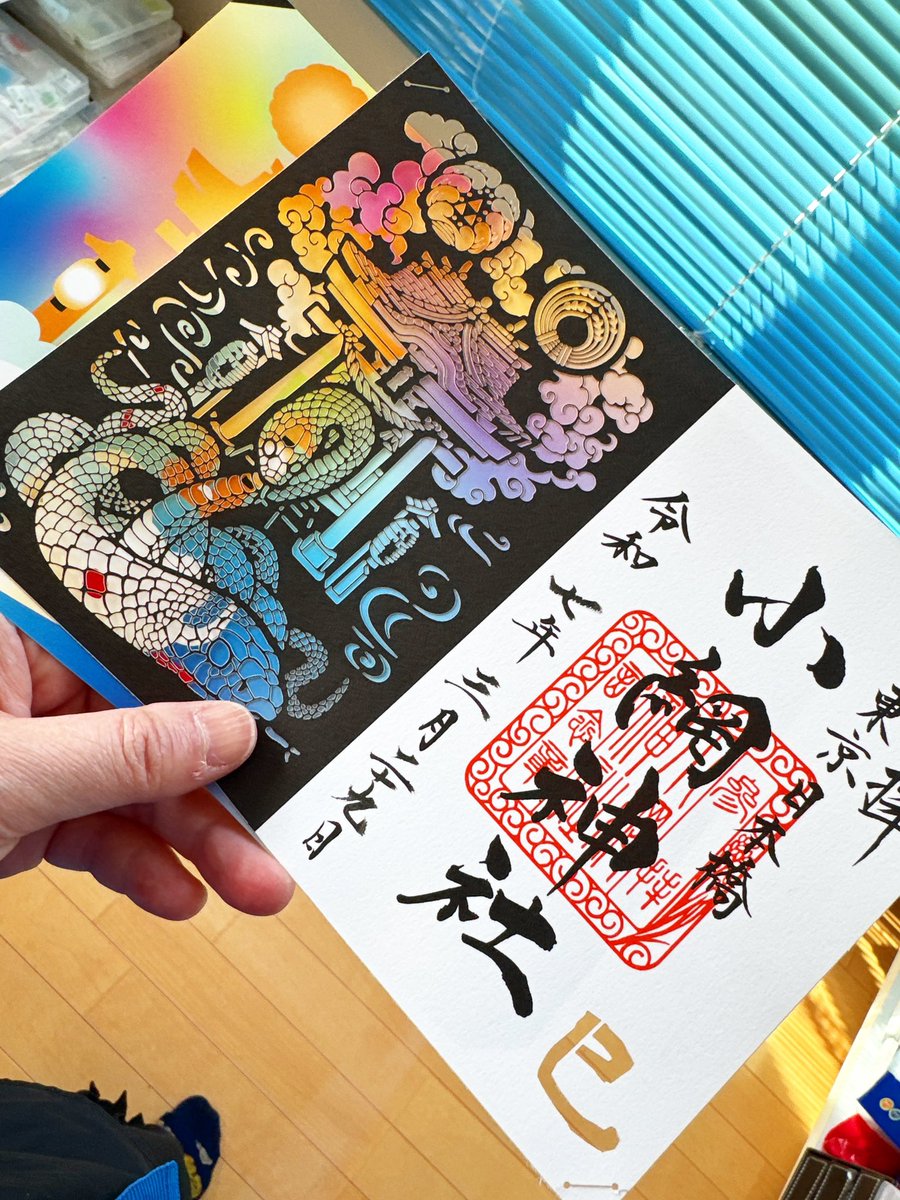 拝
東京 日本橋
小網神社
令和七年三月二十九日
巳